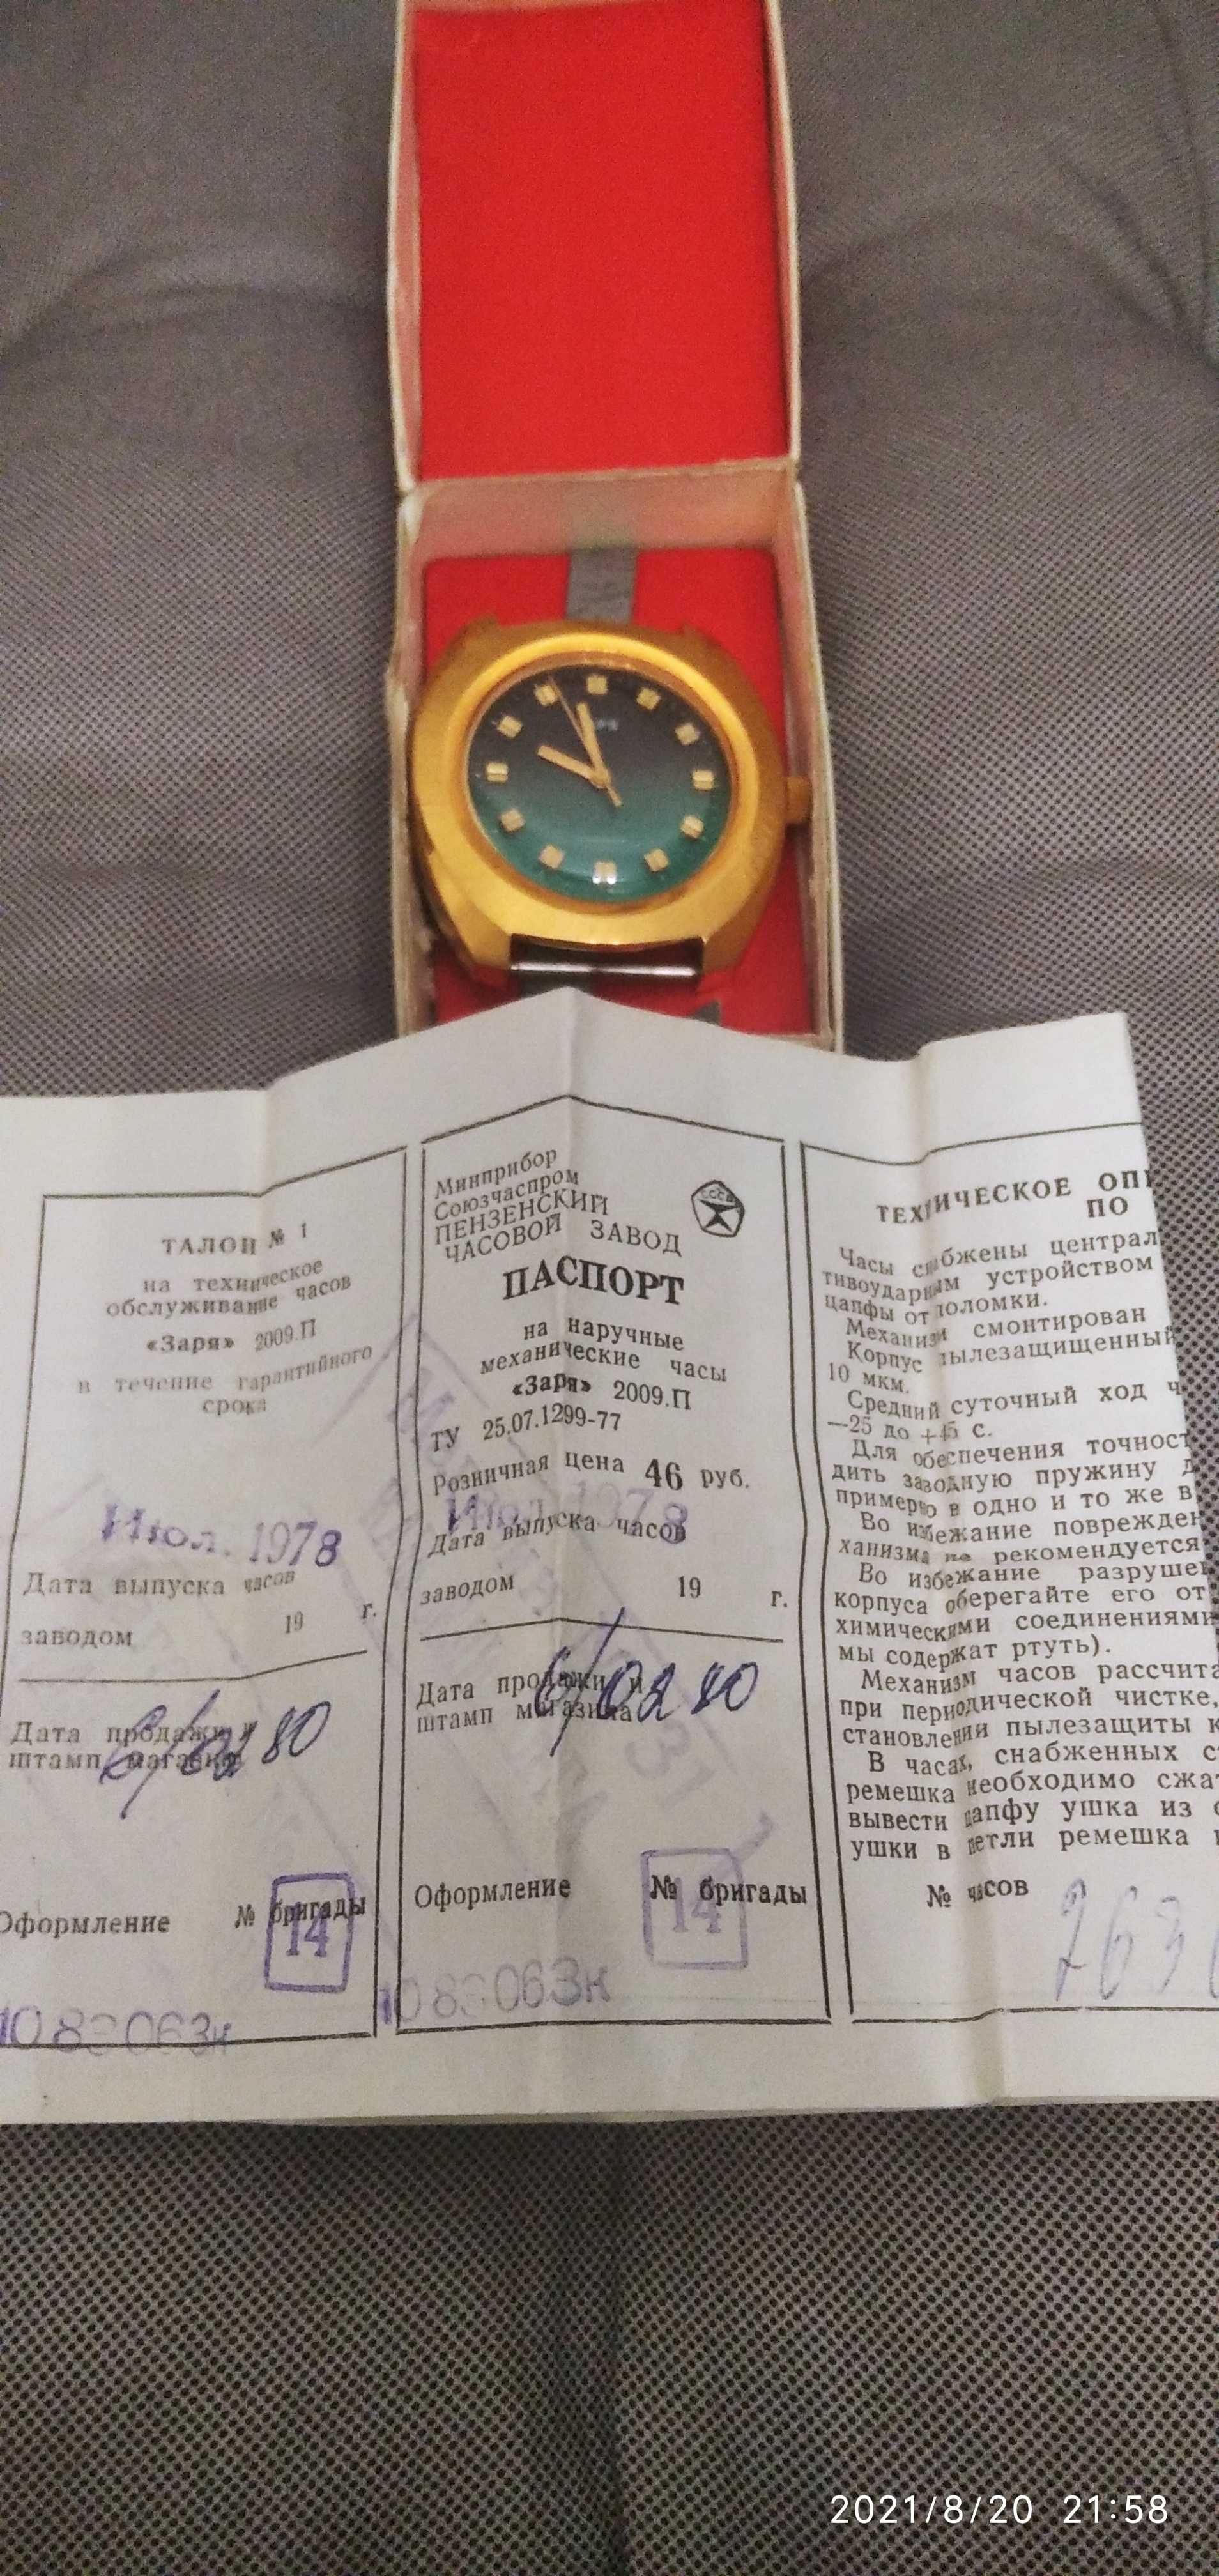 ТАЛОН № 1
на техническое
обслуживание часов
«Заря» 2009.П
в течение гарантийного
срока
Июл. 1978
Дата выпуска часов
заводом 19 г.
Дата продажи и
штамп магазина
80
Оформление № бригады
14
Минприбор
Союзчаспром
ПЕНЗЕНСКИЙ
ЧАСОВОЙ ЗАВОД
СССР
ПАСПОРТ
на наручные
механические часы
«Заря» 2009.П
ТУ 25.07.1299-77
Розничная цена 46 руб.
Июл. 1978
Дата выпуска часов
заводом 19 г.
Дата продажи и
штамп магазина
6/02 80
Оформление № бригады
14
063н
ТЕХНИЧЕСКОЕ ОПИ
ПО
Часы снабжены централ
тивоударным устройством
цапфы от поломки.
Механизм смонтирован
Корпус пылезащищенный
10 мкм.
Средний суточный ход ч
—25 до +45 с.
Для обеспечения точност
дить заводную пружину
примерно в одно и то же в
Во избежание поврежден
ханизма не рекомендуется
Во избежание разруше
корпуса оберегайте его от
химическими соединениями
мы содержат ртуть).
Механизм часов рассчита
при периодической чистке,
становлении пылезащиты к
В часах, снабженных с
ремешка необходимо сжат
вывести цапфу ушка из
ушки в петли ремешка
№ часов
263
2021/8/20 21:58